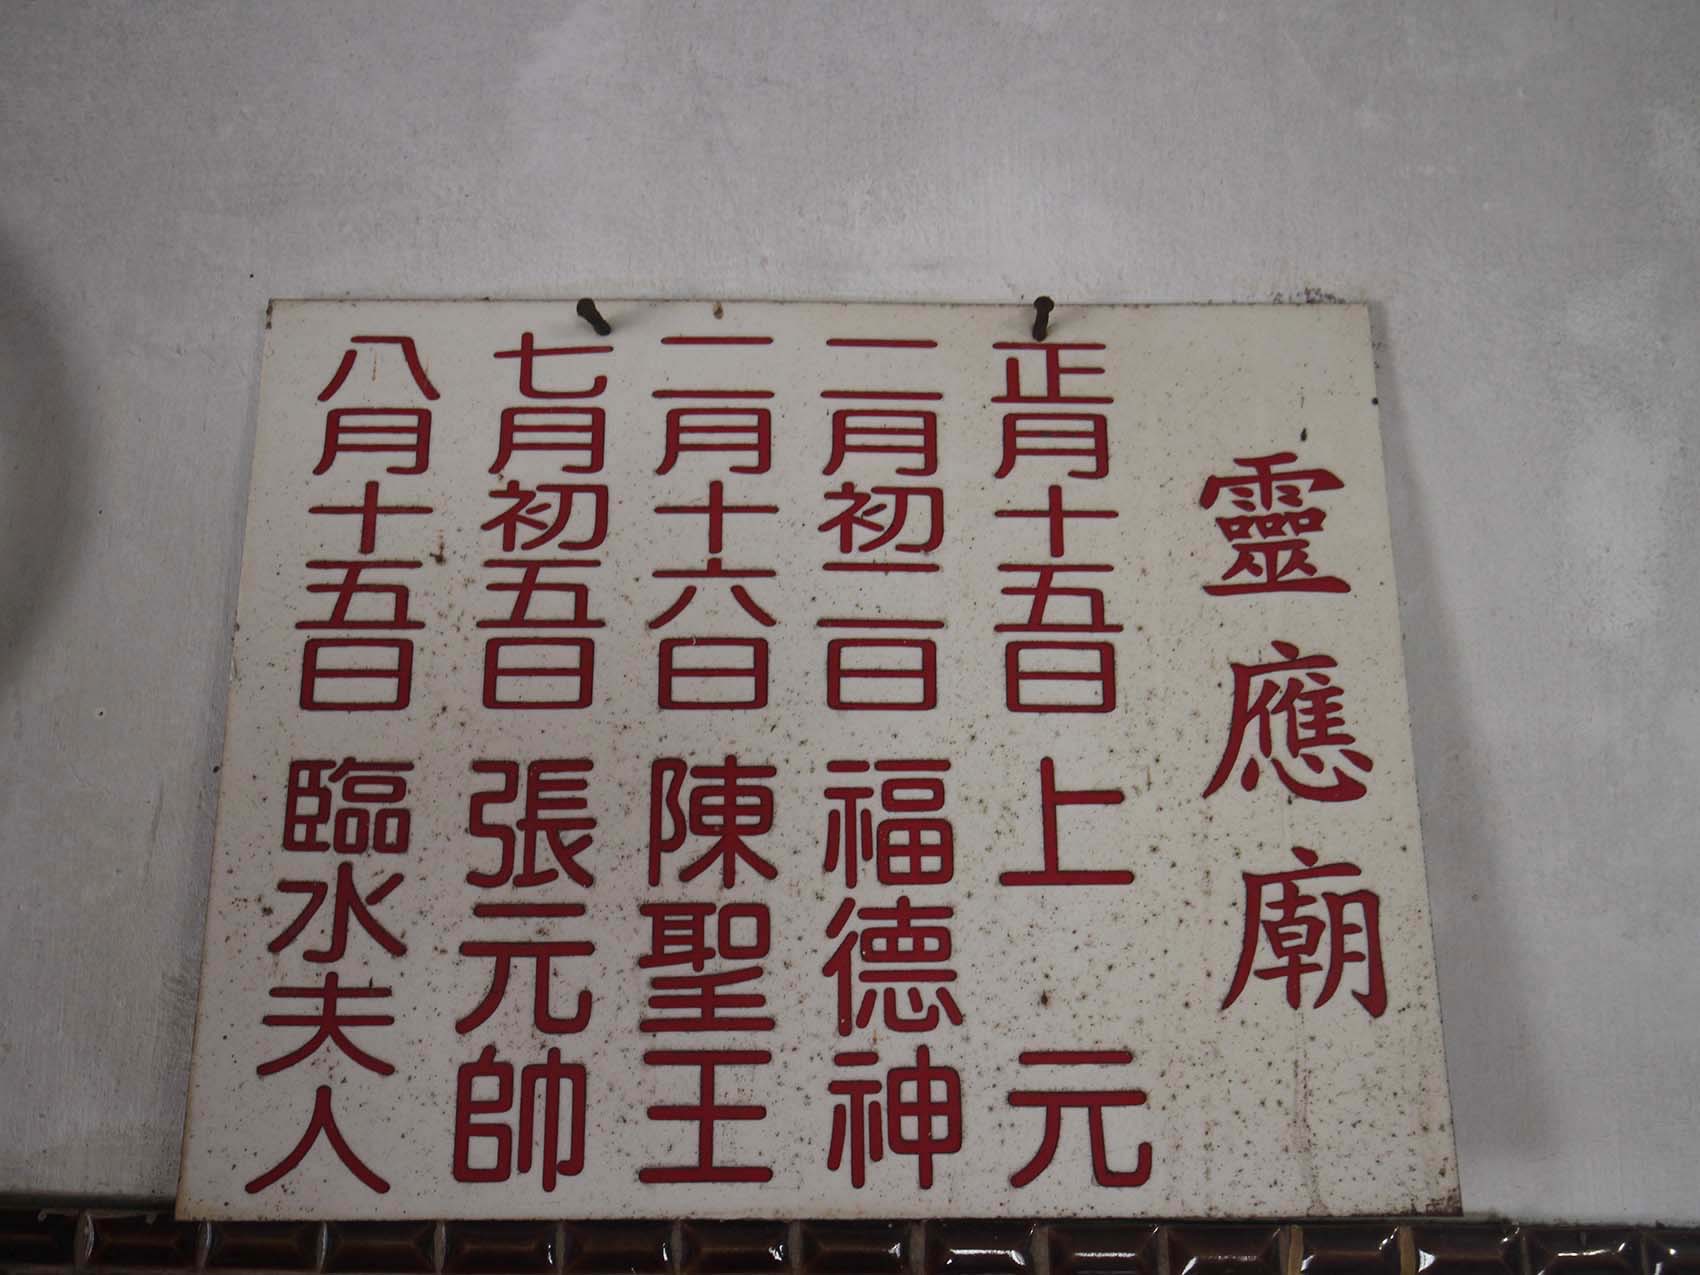 靈應廟
正月十五日 上元
二月初二日 福德神
二月十六日 陳聖王
七月初五日 張元帥
八月十五日 臨水夫人